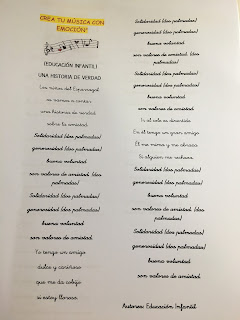 CREA TU MÚSICA CON
EMOCIÓN"
(EDUCACIÓN INFANTIL)
UNA HISTORIA DE VERDAD
Los niños del Esparragal
os vamos a contar
una historia de verdad
sobre la amistad.
Solidaridad (dos palmadas)
generosidad (dos palmadas)
buena voluntad
son valores de amistad. (dos
palmadas)
Solidaridad (dos palmadas)
generosidad (dos palmadas)
buena voluntad
son valores de amistad.
Yo tengo un amigo
dulce y cariñoso
que me da cobijo
si estoy lloroso.
Solidaridad (dos palmadas)
generosidad (dos palmadas)
buena voluntad
son valores de amistad. (dos
palmadas)
Solidaridad (dos palmadas)
generosidad (dos palmadas)
buena voluntad
son valores de amistad.
Si el cole es divertido
En él tengo un gran amigo.
Él me mima y me abraza
Si alguien me rechaza.
Solidaridad (dos palmadas)
generosidad (dos palmadas)
buena voluntad
son valores de amistad. (dos
palmadas)
Solidaridad (dos palmadas)
generosidad (dos palmadas)
buena voluntad
son valores de amistad.
Autores: Educación Infantil